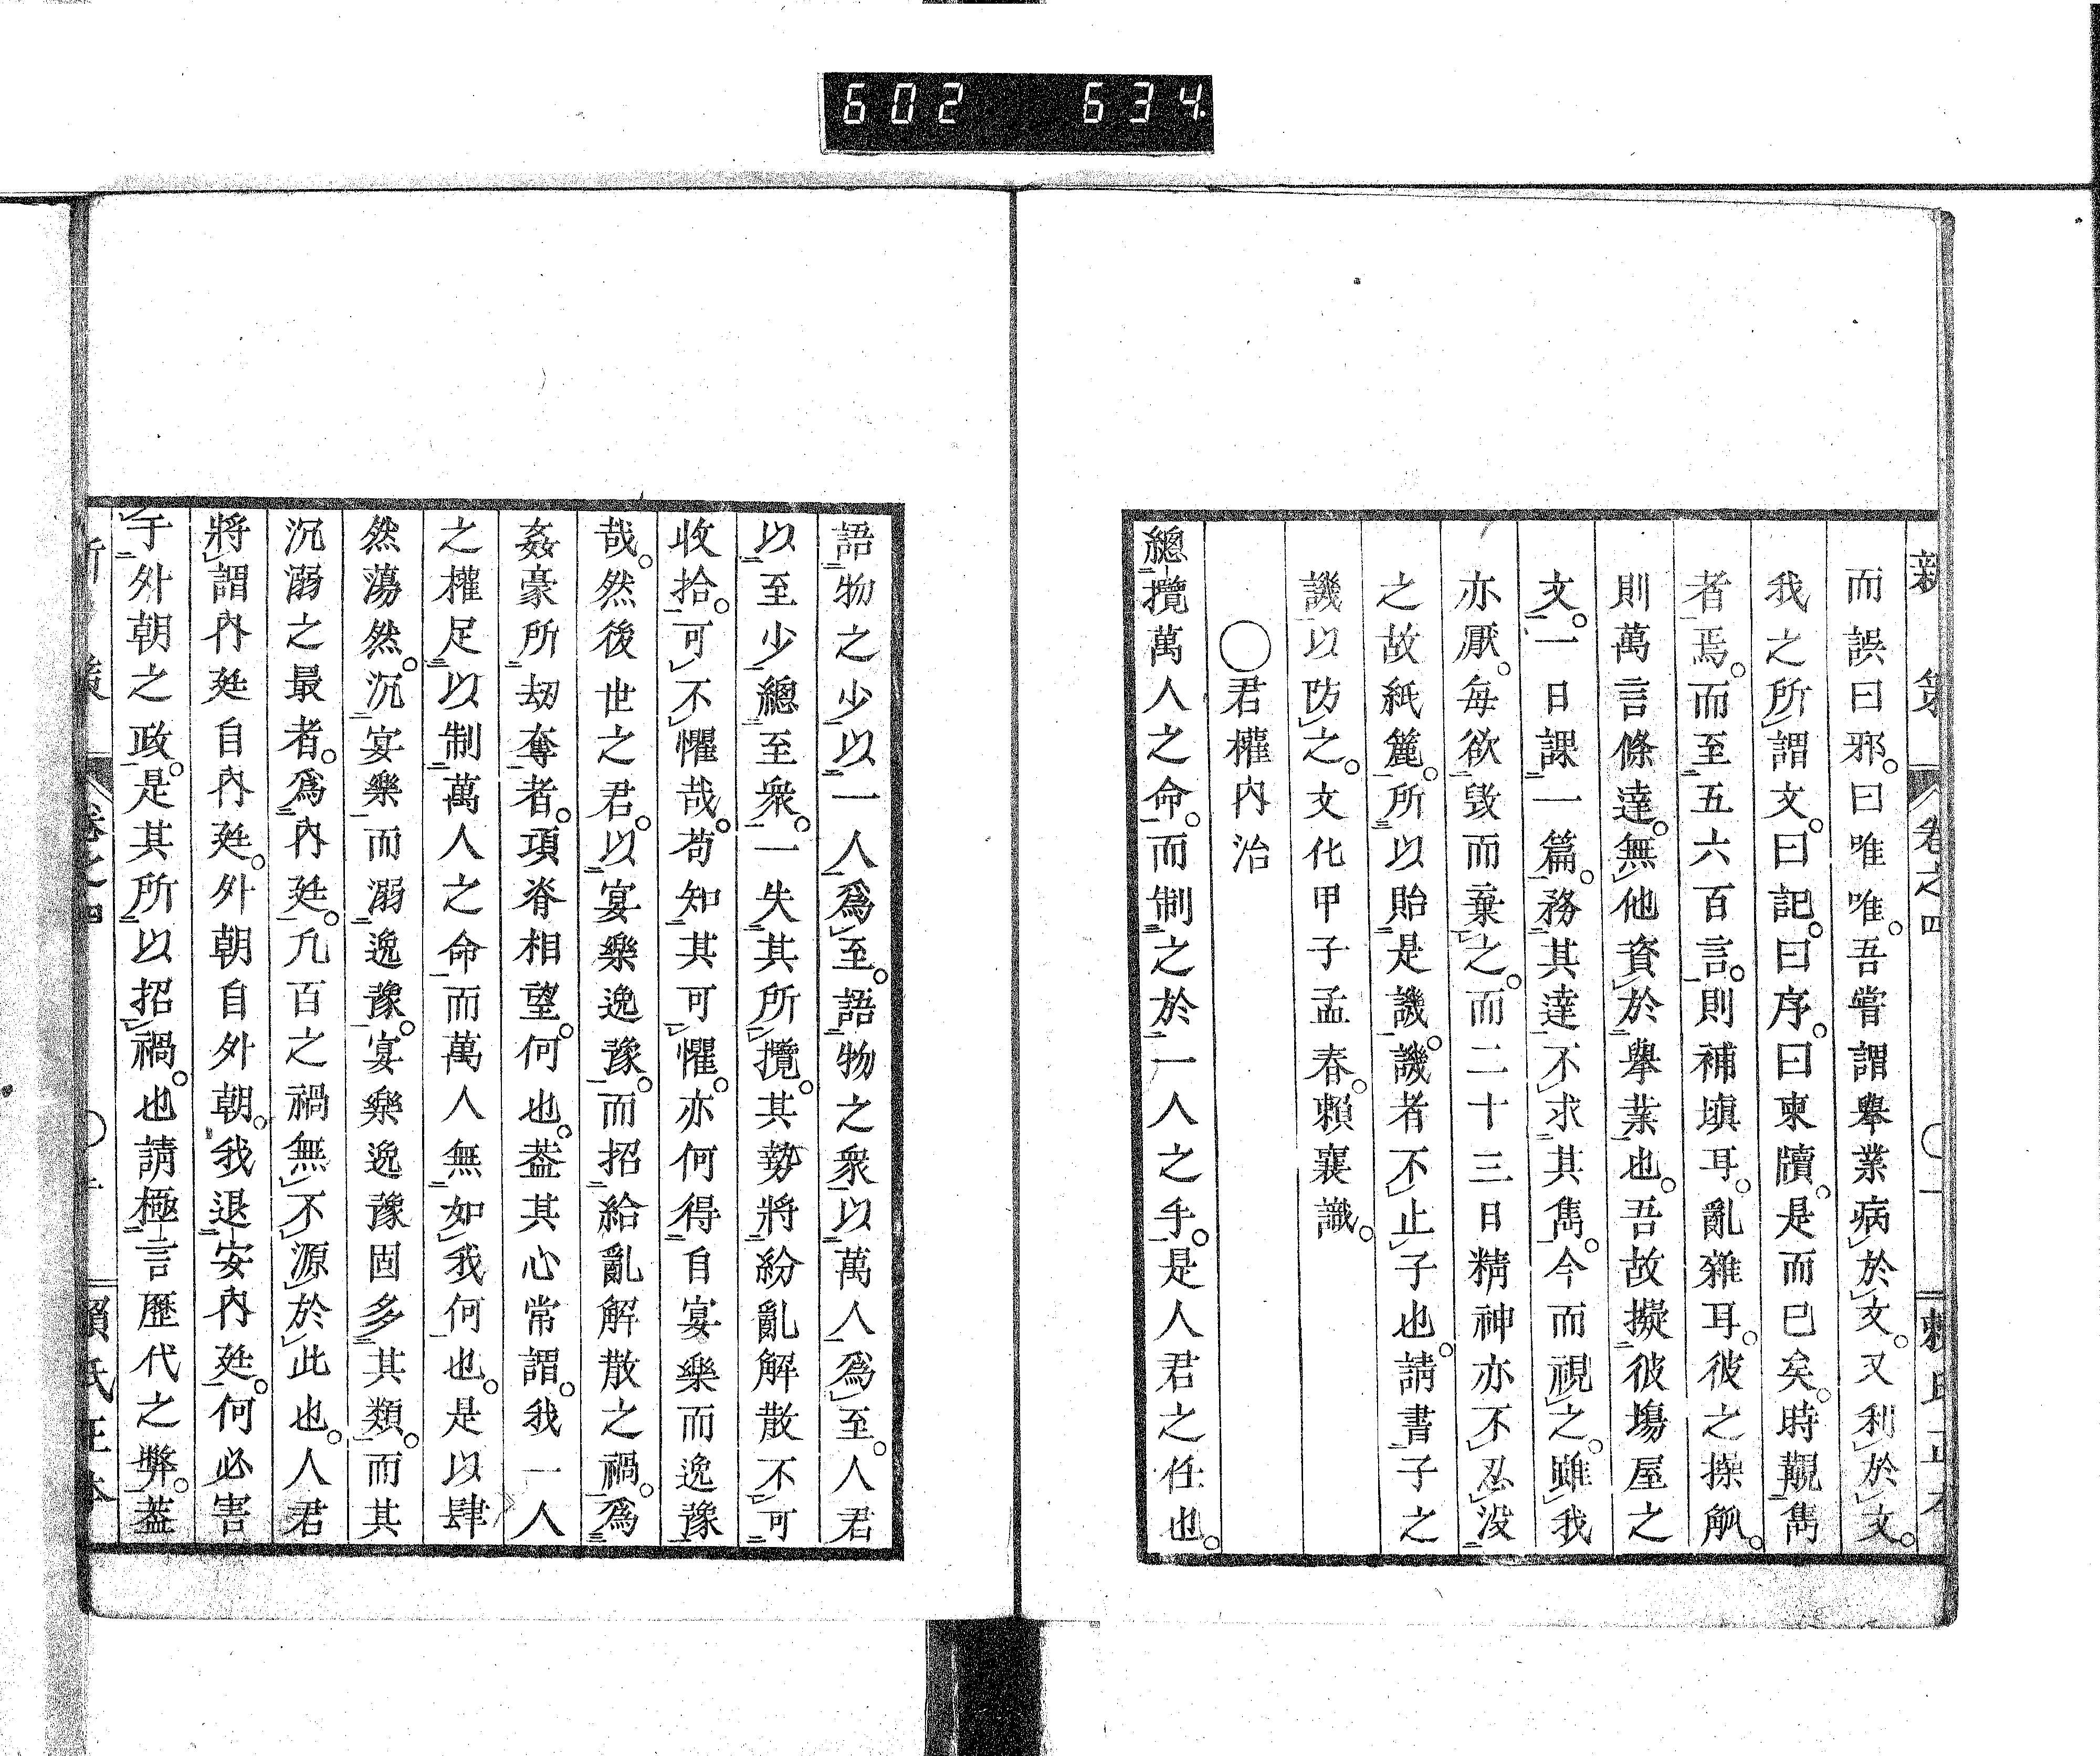 602 634
新策 卷之四 〇一 賴氏正本
而誤曰邪。曰唯唯。吾嘗謂擧業病於文。又利於文。
我之所謂文。曰記。曰序。曰柬牘。是而已矣。時覯雋
者焉。而至五六百言。則補塡耳。亂雜耳。彼之操觚。
則萬言條達。無他資於擧業也。吾故擬彼塲屋之
文。一日課一篇。務其達不求其雋。今而視之。雖我
亦厭。每欲毀而棄之。而二十三日精神亦不忍沒
之故紙簏。所以貽是譏。譏者不止子也。請書子之
譏以防之。文化甲子孟春。賴襄識。
〇君權內治
總攬萬人之命。而制之於一人之手。是人君之任也。
語物之少。以一人爲至。語物之衆。以萬人爲至。人君
以至少總至衆。一失其所攬。其勢將紛亂解散不可
收拾。可不懼哉。苟知其可懼。亦何得自宴樂而逸豫
哉。然後世之君。以宴樂逸豫。而招紿亂解散之禍。爲
姦豪所刧奪者。項脊相望。何也。葢其心常謂。我一人
之權足以制萬人之命。而萬人無如我何也。是以肆
然蕩然。沉宴樂而溺逸豫。宴樂逸豫固多其類。而其
沉溺之最者。爲內廷。凢百之禍無不源於此也。人君
將謂內廷自內廷。外朝自外朝。我退安內廷。何必害
于外朝之政。是其所以招禍也。請極言歷代之弊。葢
新策 卷之四 〇 賴氏正本